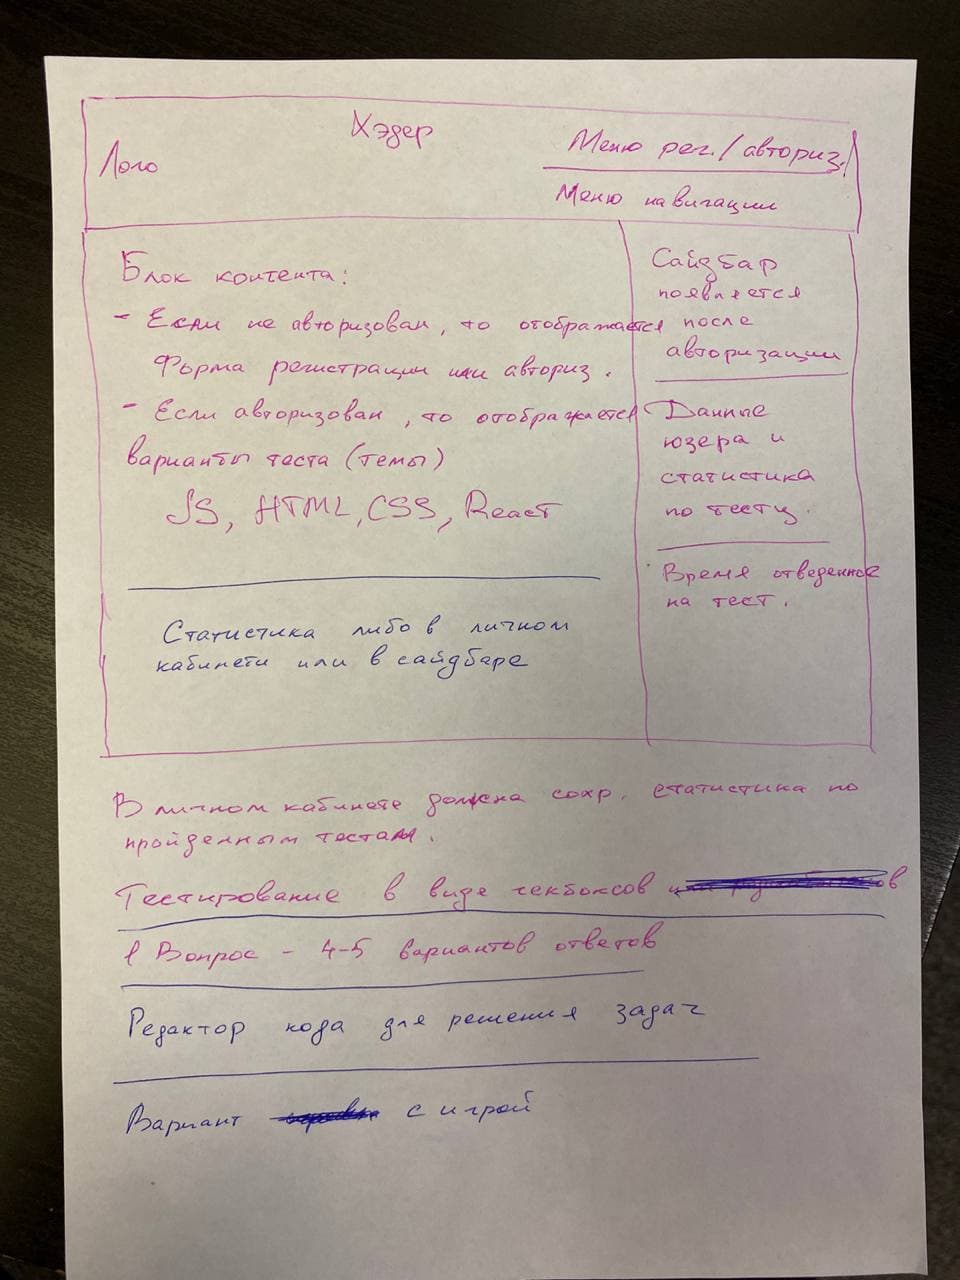 Хэдер
Лого
Меню рег./авториз.
Меню навигации
Блок контента:
- Если не авторизован, то отображается
Форма регистрации или авториз.
- Если авторизован, то отображается
варианты теста (темы)
JS, HTML, CSS, React
Статистика либо в личном
кабинети или в сайдбаре
Сайдбар
появляется
после
авторизации
Данные
юзера и
статистика
по тесту.
Время отведенное
на тест.
В личном кабинете должна сохр. статистика по
пройденным тестам.
Тестирование в виде чекбоксов
1 Вопрос - 4-5 вариантов ответов
Редактор кода для решения задач
Вариант с игрой